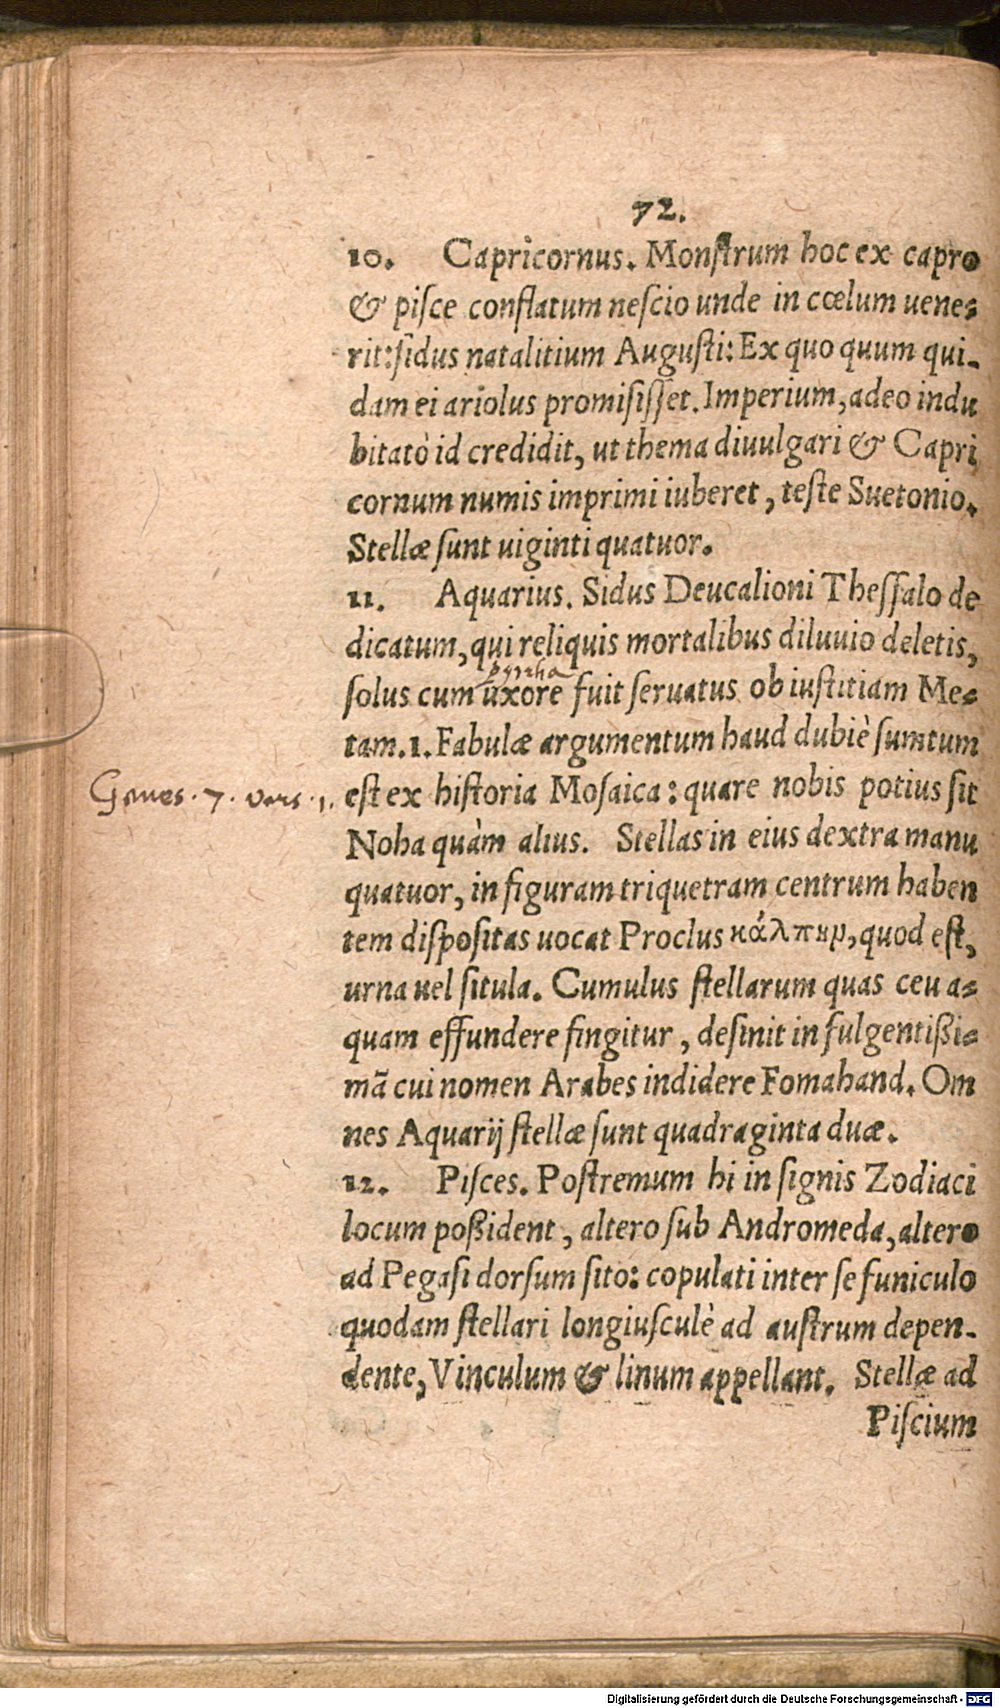 72.
10. Capricornus. Monstrum hoc ex capro
& pisce conflatum nescio unde in cœlum uene-
rit: sidus natalitium Augusti: Ex quo quum qui-
dam ei ariolus promisisset. Imperium, adeo indu
bitatò id credidit, ut thema diuulgari & Capri
cornum numis imprimi iuberet, teste Suetonio.
Stellæ sunt uiginti quatuor.
11. Aquarius. Sidus Deucalioni Thessalo de
dicatum, qui reliquis mortalibus diluuio deletis,
pyrrha
solus cum uxore fuit seruatus ob iustitiam Me-
tam. 1. Fabulæ argumentum haud dubiè sumtum
Genes. 7. vers. 1.
est ex historia Mosaica: quare nobis potius sit
Noha quàm alius. Stellas in eius dextra manu
quatuor, in figuram triquetram centrum haben
tem dispositas uocat Proclus κάλπην, quod est,
urna uel situla. Cumulus stellarum quas ceu a-
quam effundere fingitur, desinit in fulgentißi-
mā cui nomen Arabes indidere Fomahand. Om
nes Aquarij stellæ sunt quadraginta duæ.
12. Pisces. Postremum hi in signis Zodiaci
locum poßident, altero sub Andromeda, altero
ad Pegasi dorsum sito: copulati inter se funiculo
quodam stellari longiusculè ad austrum depen-
dente, Vinculum & linum appellant. Stellæ ad
Piscium
Digitalisierung gefördert durch die Deutsche Forschungsgemeinschaft - DFG